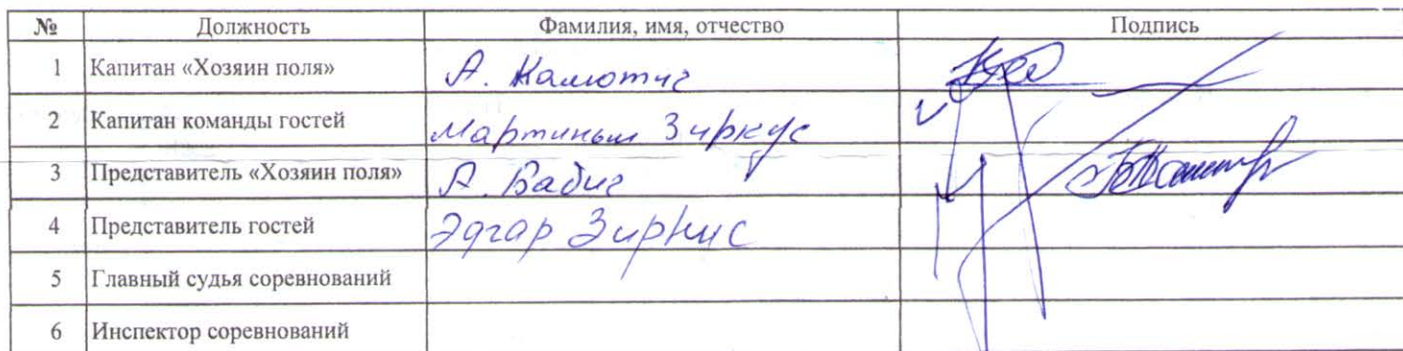 № Должность Фамилия, имя, отчество Подпись
1 Капитан «Хозяин поля» А. Камотиг
2 Капитан команды гостей Мартиньш Зиркус
3 Представитель «Хозяин поля» А. Бабиг
4 Представитель гостей Эдгар Зирнис
5 Главный судья соревнований
6 Инспектор соревнований